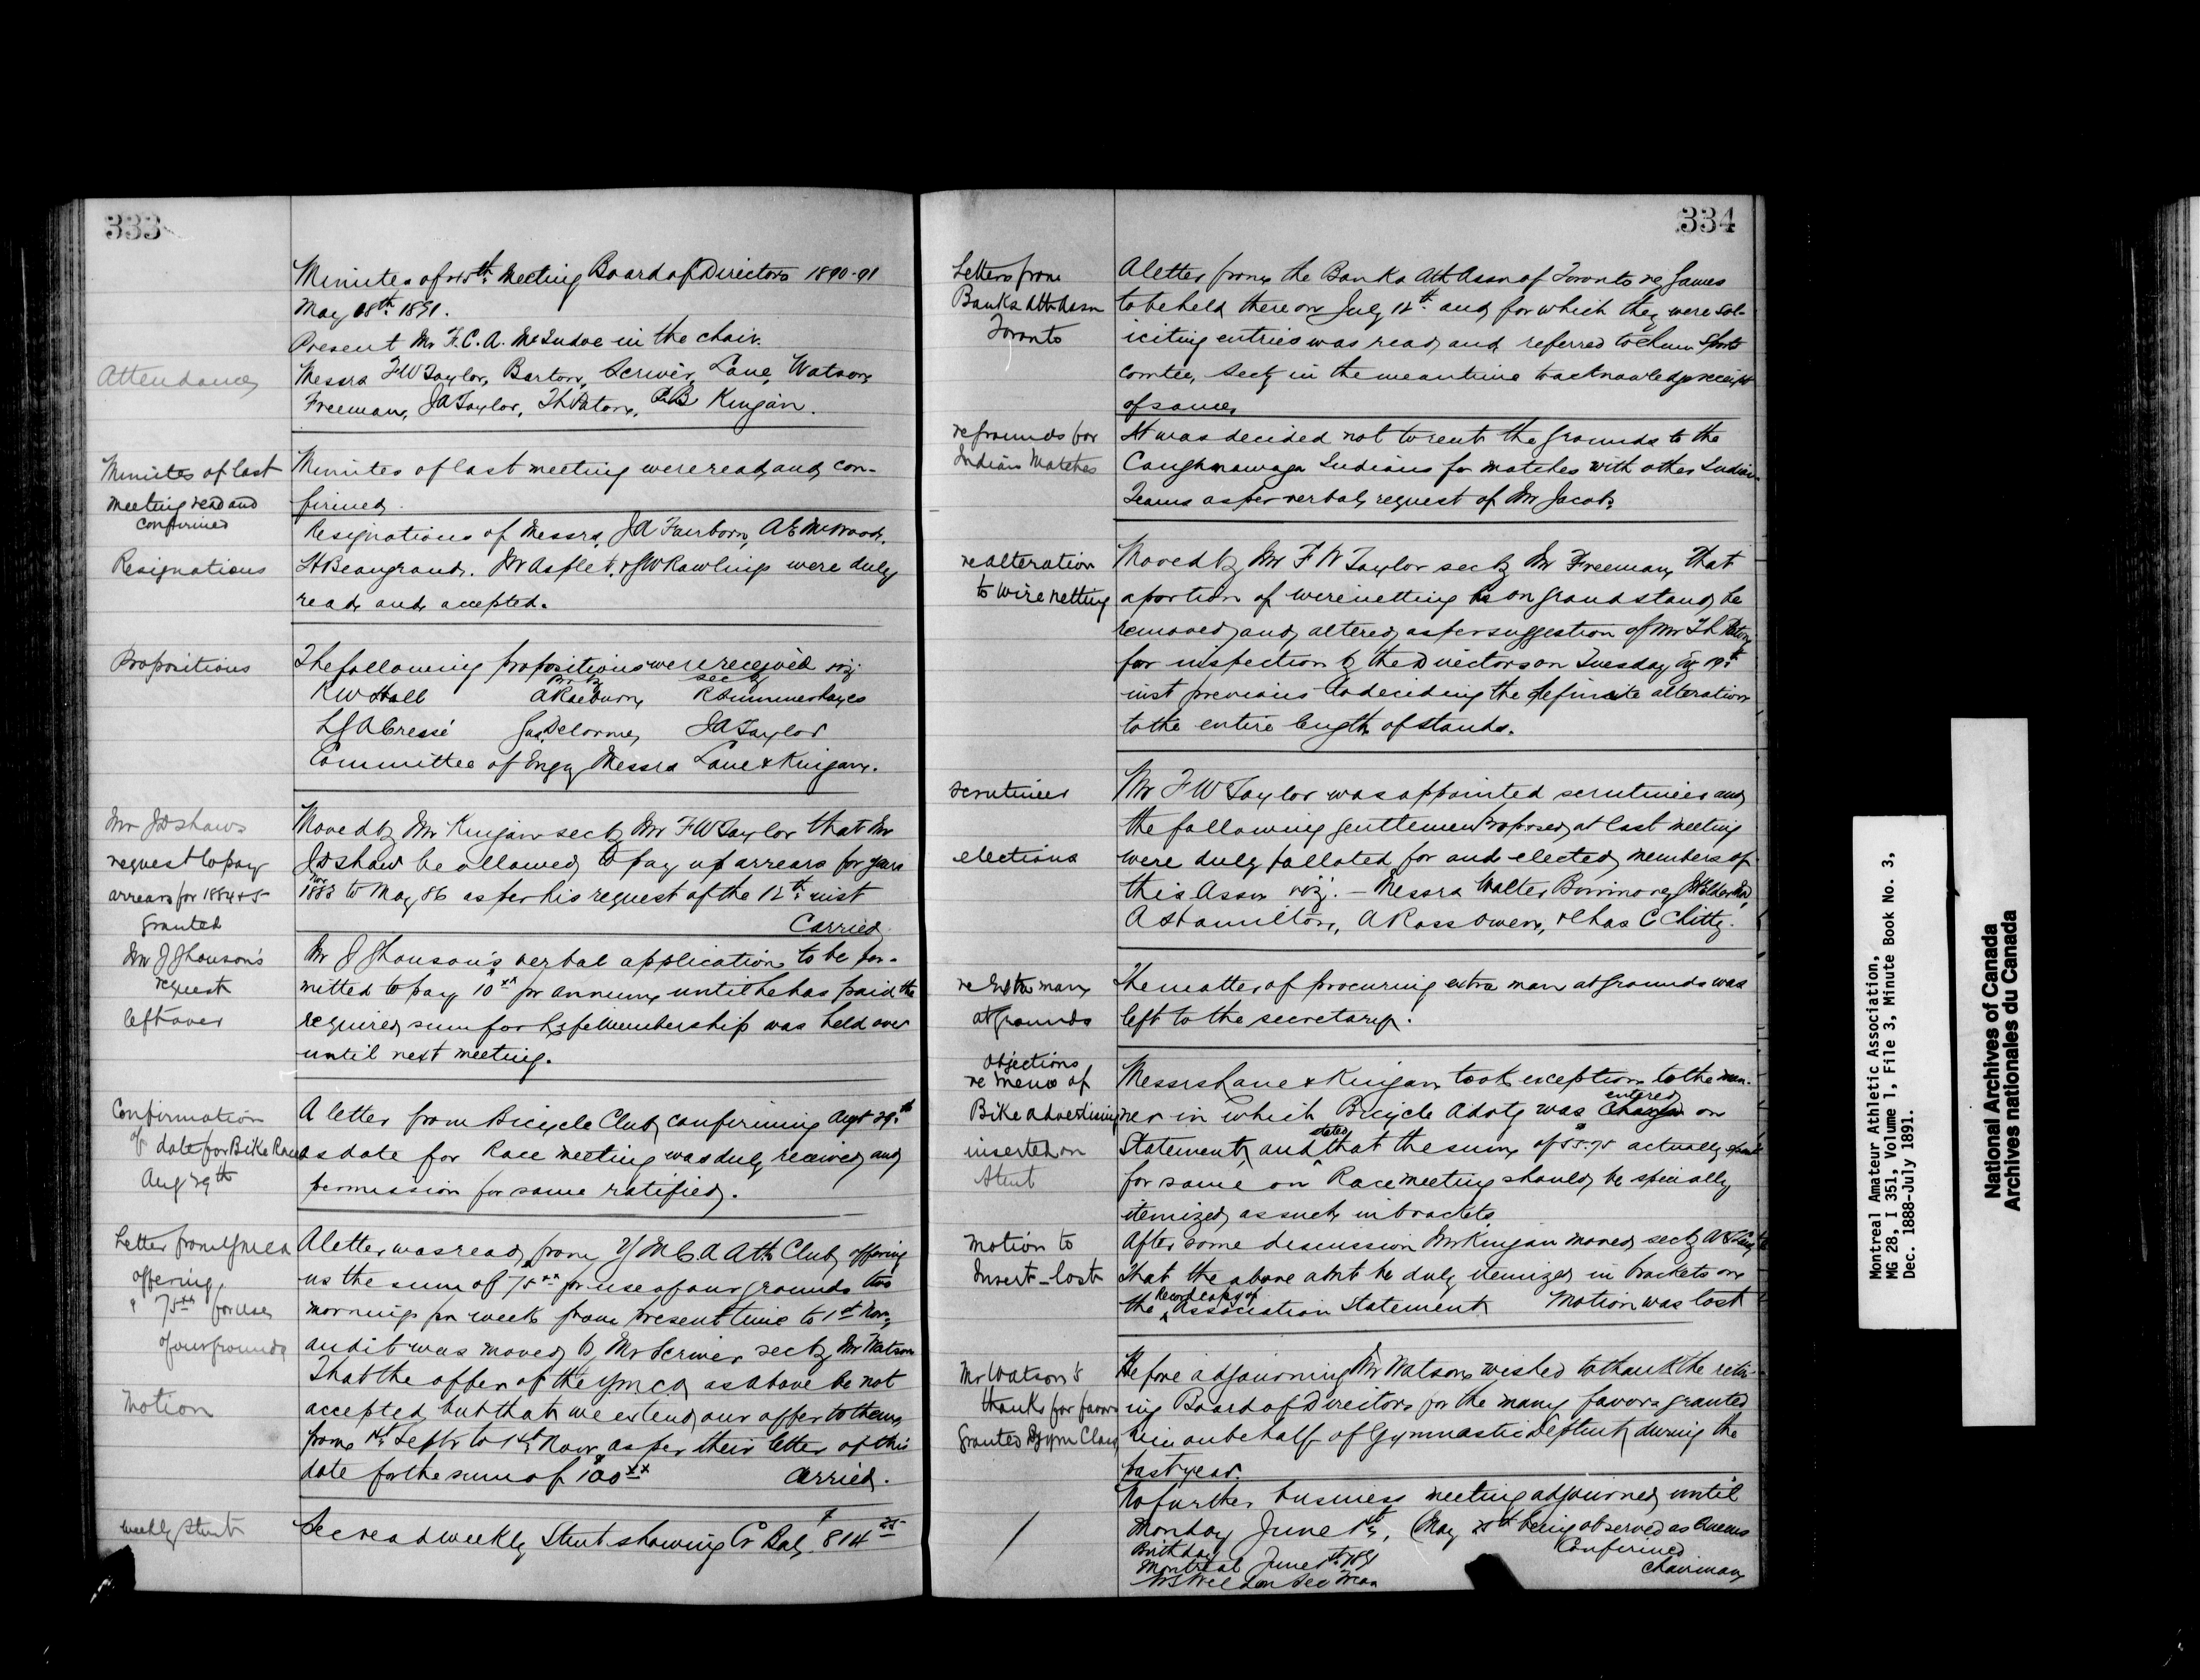 333
Minutes of 45th Meeting Board of Directors 1890-91
May 18th 1891.
Present Mr F.C.A. McIndoe in the chair.
Attendance
Messrs FW Taylor, Barton, Scriver, Lane, Watson
Freeman, JA Taylor, Th Paton, Kingan.
Minutes of last
meeting read and
confirmed
Minutes of last meeting were read and con-
firmed.
Resignations
Resignations of Messrs. JA Fairborn, AE
H Beaugrand. & JW Rawlings were duly
read and accepted.
Propositions
The following propositions were received viz
pro by secby
RW Hall A Raeburn R Summerhayes
LJA Cressé Gus Delorme, JA Taylor
Committee of Enqy Messrs Lane & Kingan.
Mr JD Shaws
request to pay
arrears for 1884+5
granted
Moved by Mr Kingan secby Mr FW Taylor that Mr
JD Shaw be allowed to pay up arrears for years
Nov
1883 to May 86 as per his request of the 12th inst
Carried.
Mr J
request
left over
Mr J verbal application to be per-
mitted to pay $10xx pr annum until he has paid the
required sum for Life Membership was held over
until next meeting.
Confirmation
of date for Bike Races
Aug 29th
A letter from Bicycle Club confirming Augt 29th
as date for Race meeting was duly received and
permission for same ratified.
Letter from YMCA
offering
$75xx for use
of our grounds
A letter was read from Y M C. A Ath Club offering
us the sum of $75xx for use of our grounds two
mornings pr week from present time to 1st Nov,
and it was moved by Mr Scriver secby Mr Watson
Motion
That the offer of the YMCA as above be not
accepted but that we extend our offer to them
from 1st Septr to 1st Novr as per their letter of this
date for the sum of $100xx Carried.
weekly Stmt
Sec read weekly Stmt showing Cr Bal, $814
334
Letters from
Banks Ath Assn
Toronto
A letter from the Banks Ath Assn of Toronto re Games
to be held there on July 12th and for which they were sol-
iciting entries was read and referred to Chm Sports
Comtee, Secty in the meantime to acknowledge receipt
of same.
re grounds for
Indian Matches
It was decided not to rent the grounds to the
Caughnawaga Indians for matches with other Indian
Teams as per verbal request of Mr Jacobs
re alteration
to wire netting
Moved by Mr F W Taylor secby Mr Freeman That
a portion of wire netting on grand stand be
removed and altered as per suggestion of Mr Th Paton
for inspection by the Directors on Tuesday 19th
inst previous to deciding the definite alteration
to the entire length of stands.
scrutineer
Mr FW Taylor was appointed scrutineer and
the following gentlemen Proposed at last meeting
elections
were duly balloted for and elected members of
this Assn viz. - Messrs Walter
A Hamilton, A Ross Owen, & Chas C Chitty.
re Extra man
at grounds
The matter of procuring extra man at grounds was
left to the secretary.
Objections
re menu of
Bike advertising
inserted on
Stmt
Messrs Lane & Kingan took exception to the man-
ner in which Bicycle Advtg was entered on
Statement, and stated that the sum of $55.75 actually spent
for same on Race meeting should be specially
itemized as such in brackets
Motion to
Insert - lost
After some discussion Mr Kingan moved secby
that the above amt be duly itemized in brackets on
the Record copy of Association Statement Motion was lost
Mr Watson's
thanks for favors
granted Gym Class
Before adjourning Mr Watson wished to thank the retir-
ing Board of Directors for the many favors granted
him on behalf of Gymnastic Deptmt during the
past year.
No further business meeting adjourned until
Monday June 1st, (May 25th being observed as Queens
Birthday
Confirmed
Montreal June 1st 1891
Chairman
WS Weldon Sec Treas
Montreal Amateur Athletic Association,
MG 28, I 351, Volume 1, File 3, Minute Book No. 3,
Dec. 1888-July 1891.
National Archives of Canada
Archives nationales du Canada